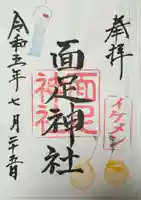 奉拝
イケメン
面足神社
面足神社
令和五年七月二十五日